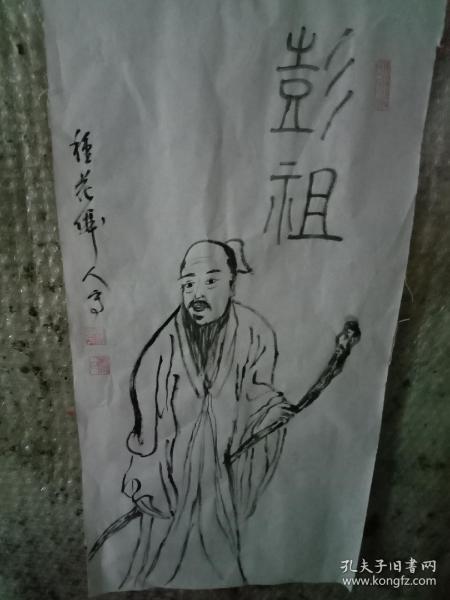 彭祖
種花
人写
孔夫子旧书网
www.kongfz.com